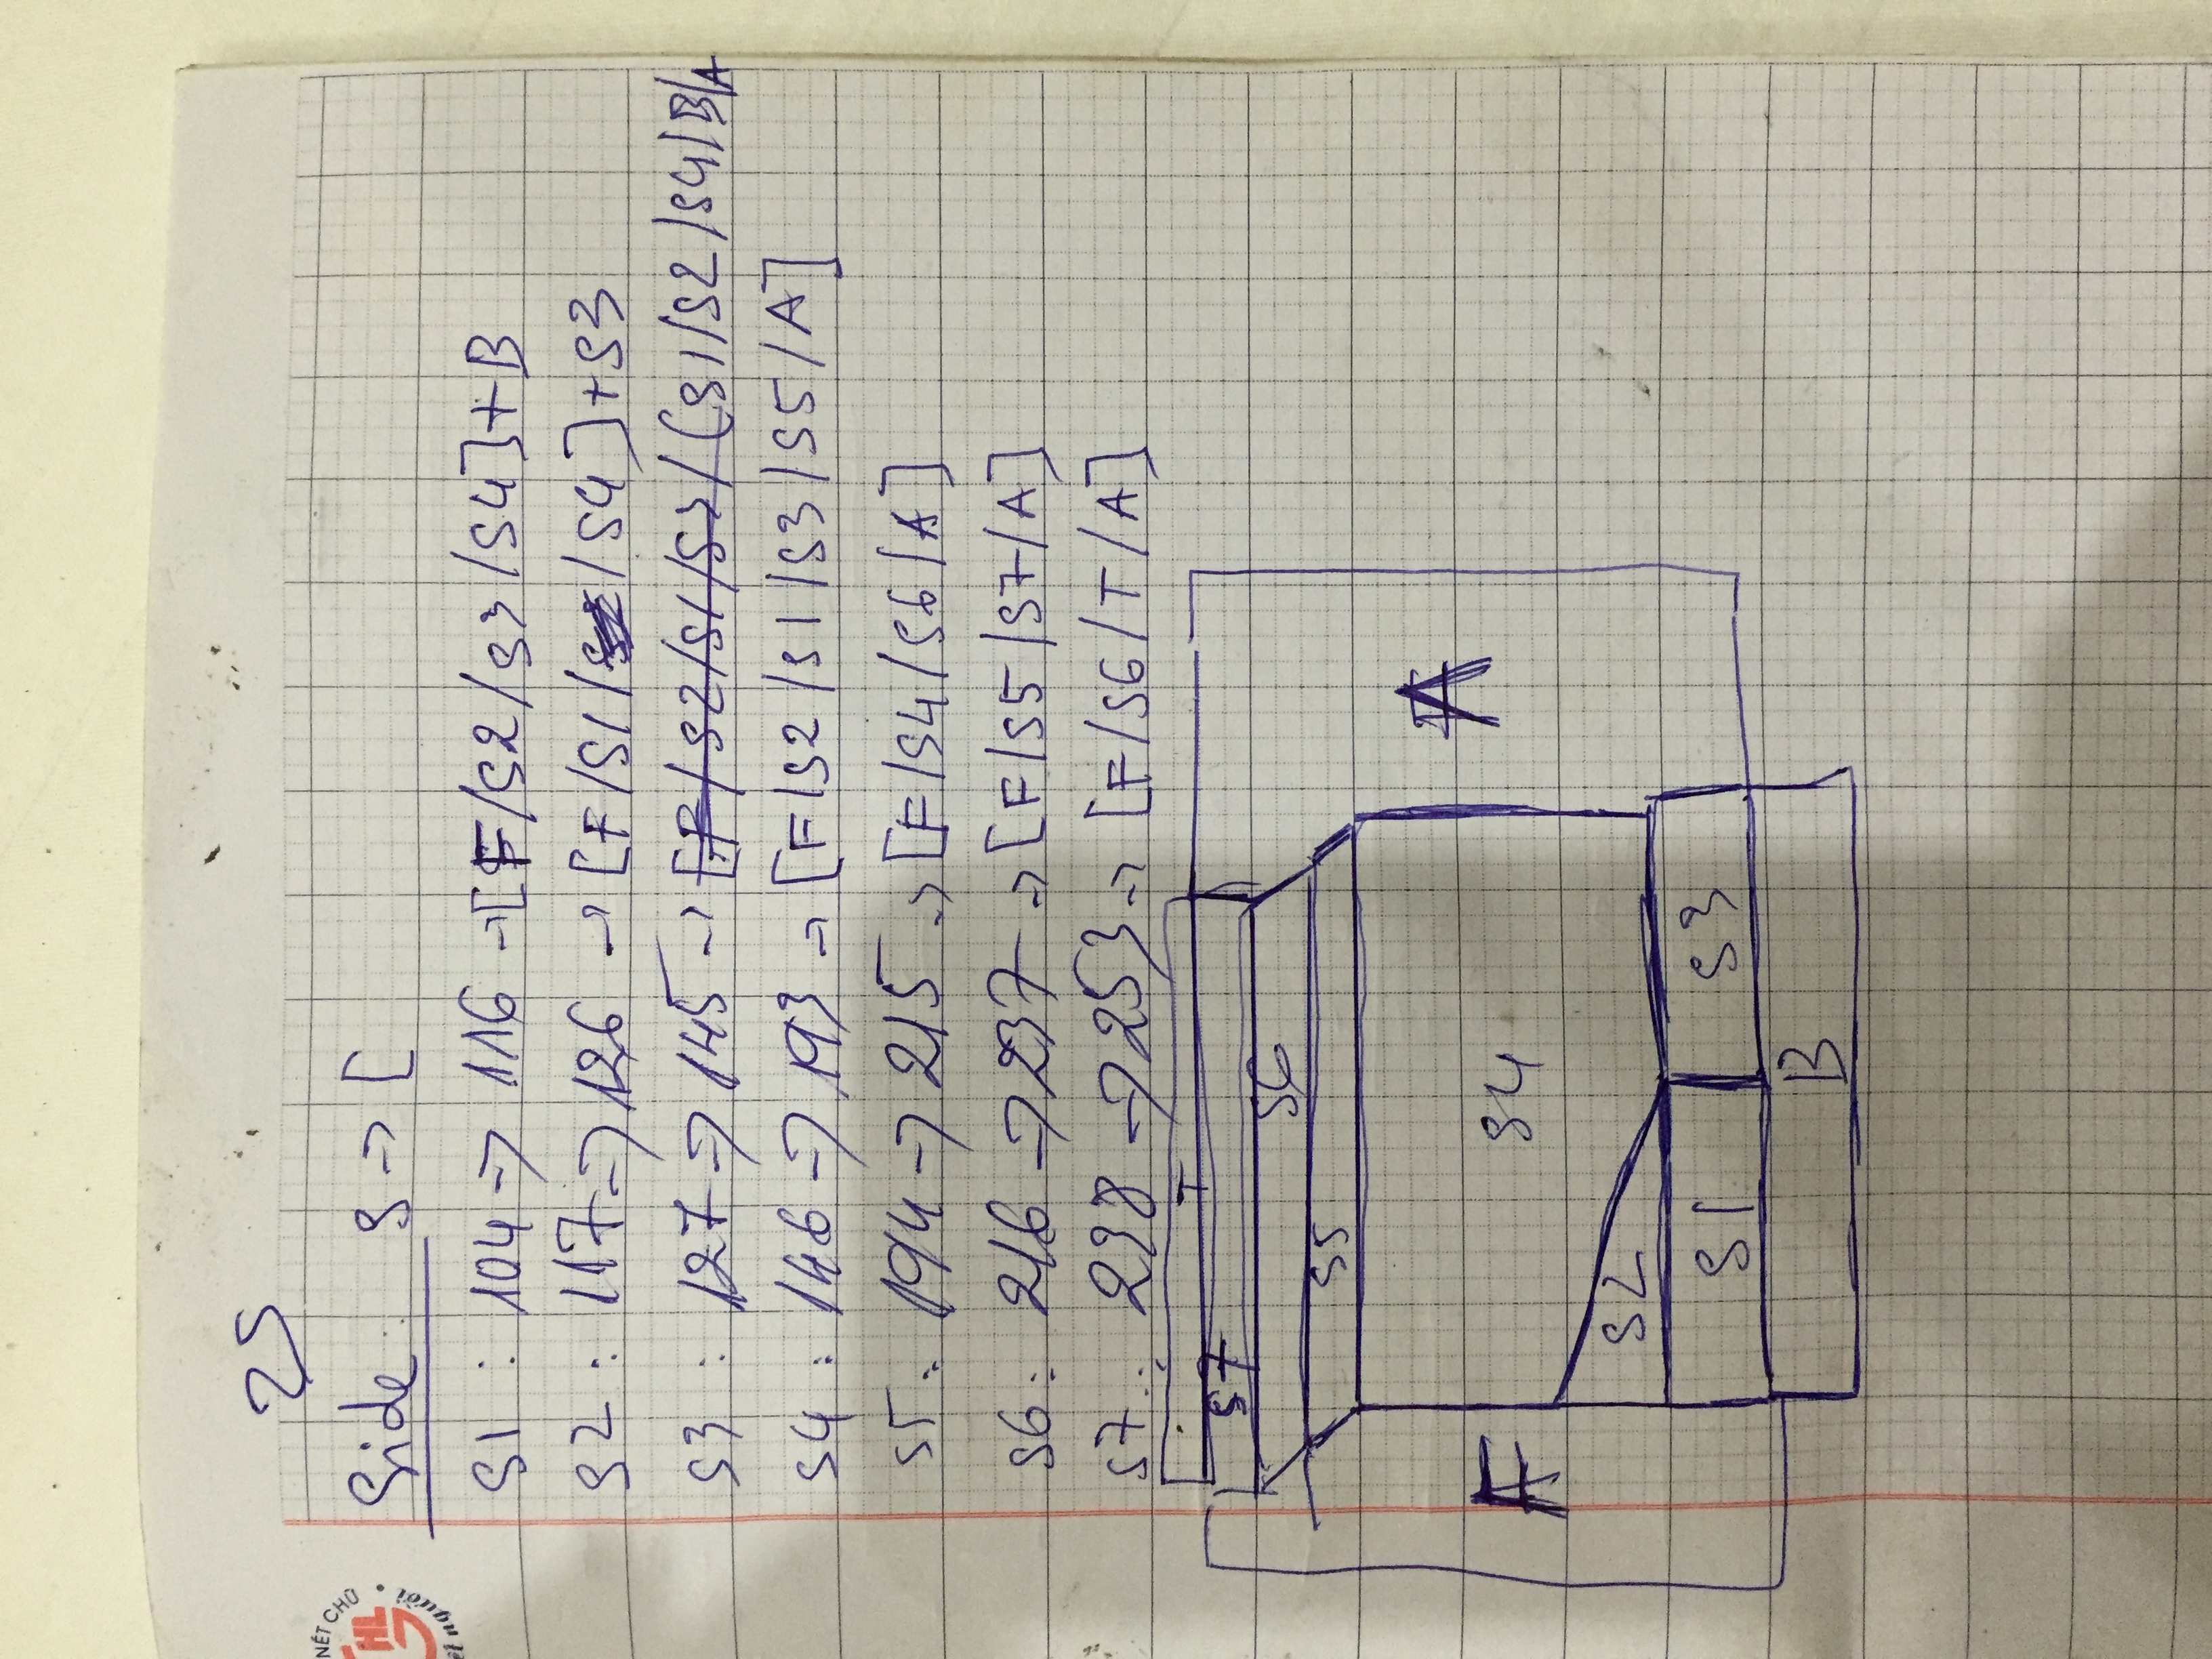 25
NÉT CHỮ
HL
ết người.
Side: S -> [
S1 : 104 -> 116 -> [F/S2/S3/S4]+B
S2 : 117 -> 126 -> [F/S1/ /S4]+S3
S3 : 127 -> 145 -> [F/S2/S1/S3/(S1/S2/S4/B/A
S4 : 146 -> 193 -> [F/S2/S1/S3/S5/A]
S5 : 194 -> 215 -> [F/S4/S6/A]
S6 : 216 -> 237 -> [F/S5/S7/A]
S7 : 238 -> 253 -> [F/S6/T/A]
T
S7
S6
S5
A
F
S4
S2
S1
S3
B